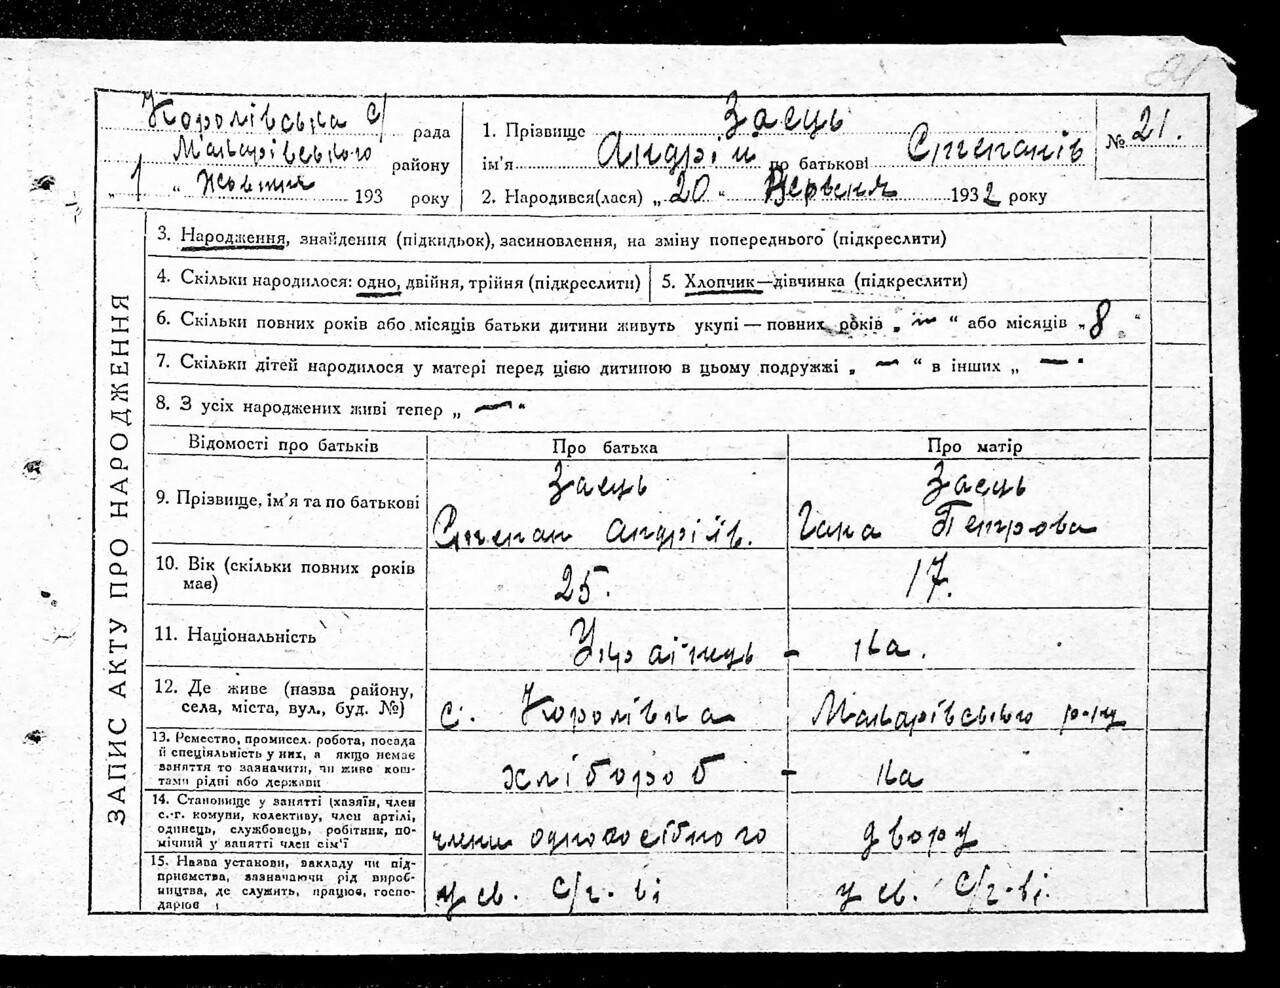 21
Королівська с/ рада
Макарівського району
„ 1 „ жовтня 193 року
1. Прізвище Заєць
ім’я Андрій по батькові Степанів
2. Народився(лася) „ 20 “ Вересня 1932 року
№ 21.
ЗАПИС АКТУ ПРО НАРОДЖЕННЯ
3. Народження, знайдення (підкидьок), засиновлення, на зміну попереднього (підкреслити)
4. Скільки народилося: одно, двійня, трійня (підкреслити)
5. Хлопчик—дівчинка (підкреслити)
6. Скільки повних років або місяців батьки дитини живуть укупі — повних років „ — “ або місяців „ 8 “
7. Скільки дітей народилося у матері перед цією дитиною в цьому подружжі „ — “ в інших „ — “
8. З усіх народжених живі тепер „ — “
Відомості про батьків Про батька Про матір
9. Прізвище, ім’я та по батькові
Заєць
Степан Андріїв.
Заєць
Гана Петрова
10. Вік (скільки повних років
має)
25.
17.
11. Національність
Українець - ка.
12. Де живе (назва району,
села, міста, вул., буд. №)
с. Королівка Макарівського р-ну
13. Ремество, промисел. робота, посада
й спеціяльність у них, а якщо немає
заняття то зазначити, чи живе кош-
тами рідні або держави
хлібороб - ка
14. Становище у занятті (хазяїн, член
с.-г. комуни, колективу, член артілі,
одинець, службовець, робітник, по-
мічний у занятті член сім’ї
член одноосібного двору
15. Назва установи, закладу чи під-
приємства, зазначаючи рід вироб-
ництва, де служить, працює, госпо-
дарює
у св. с/г-ві
у св. с/г-ві.